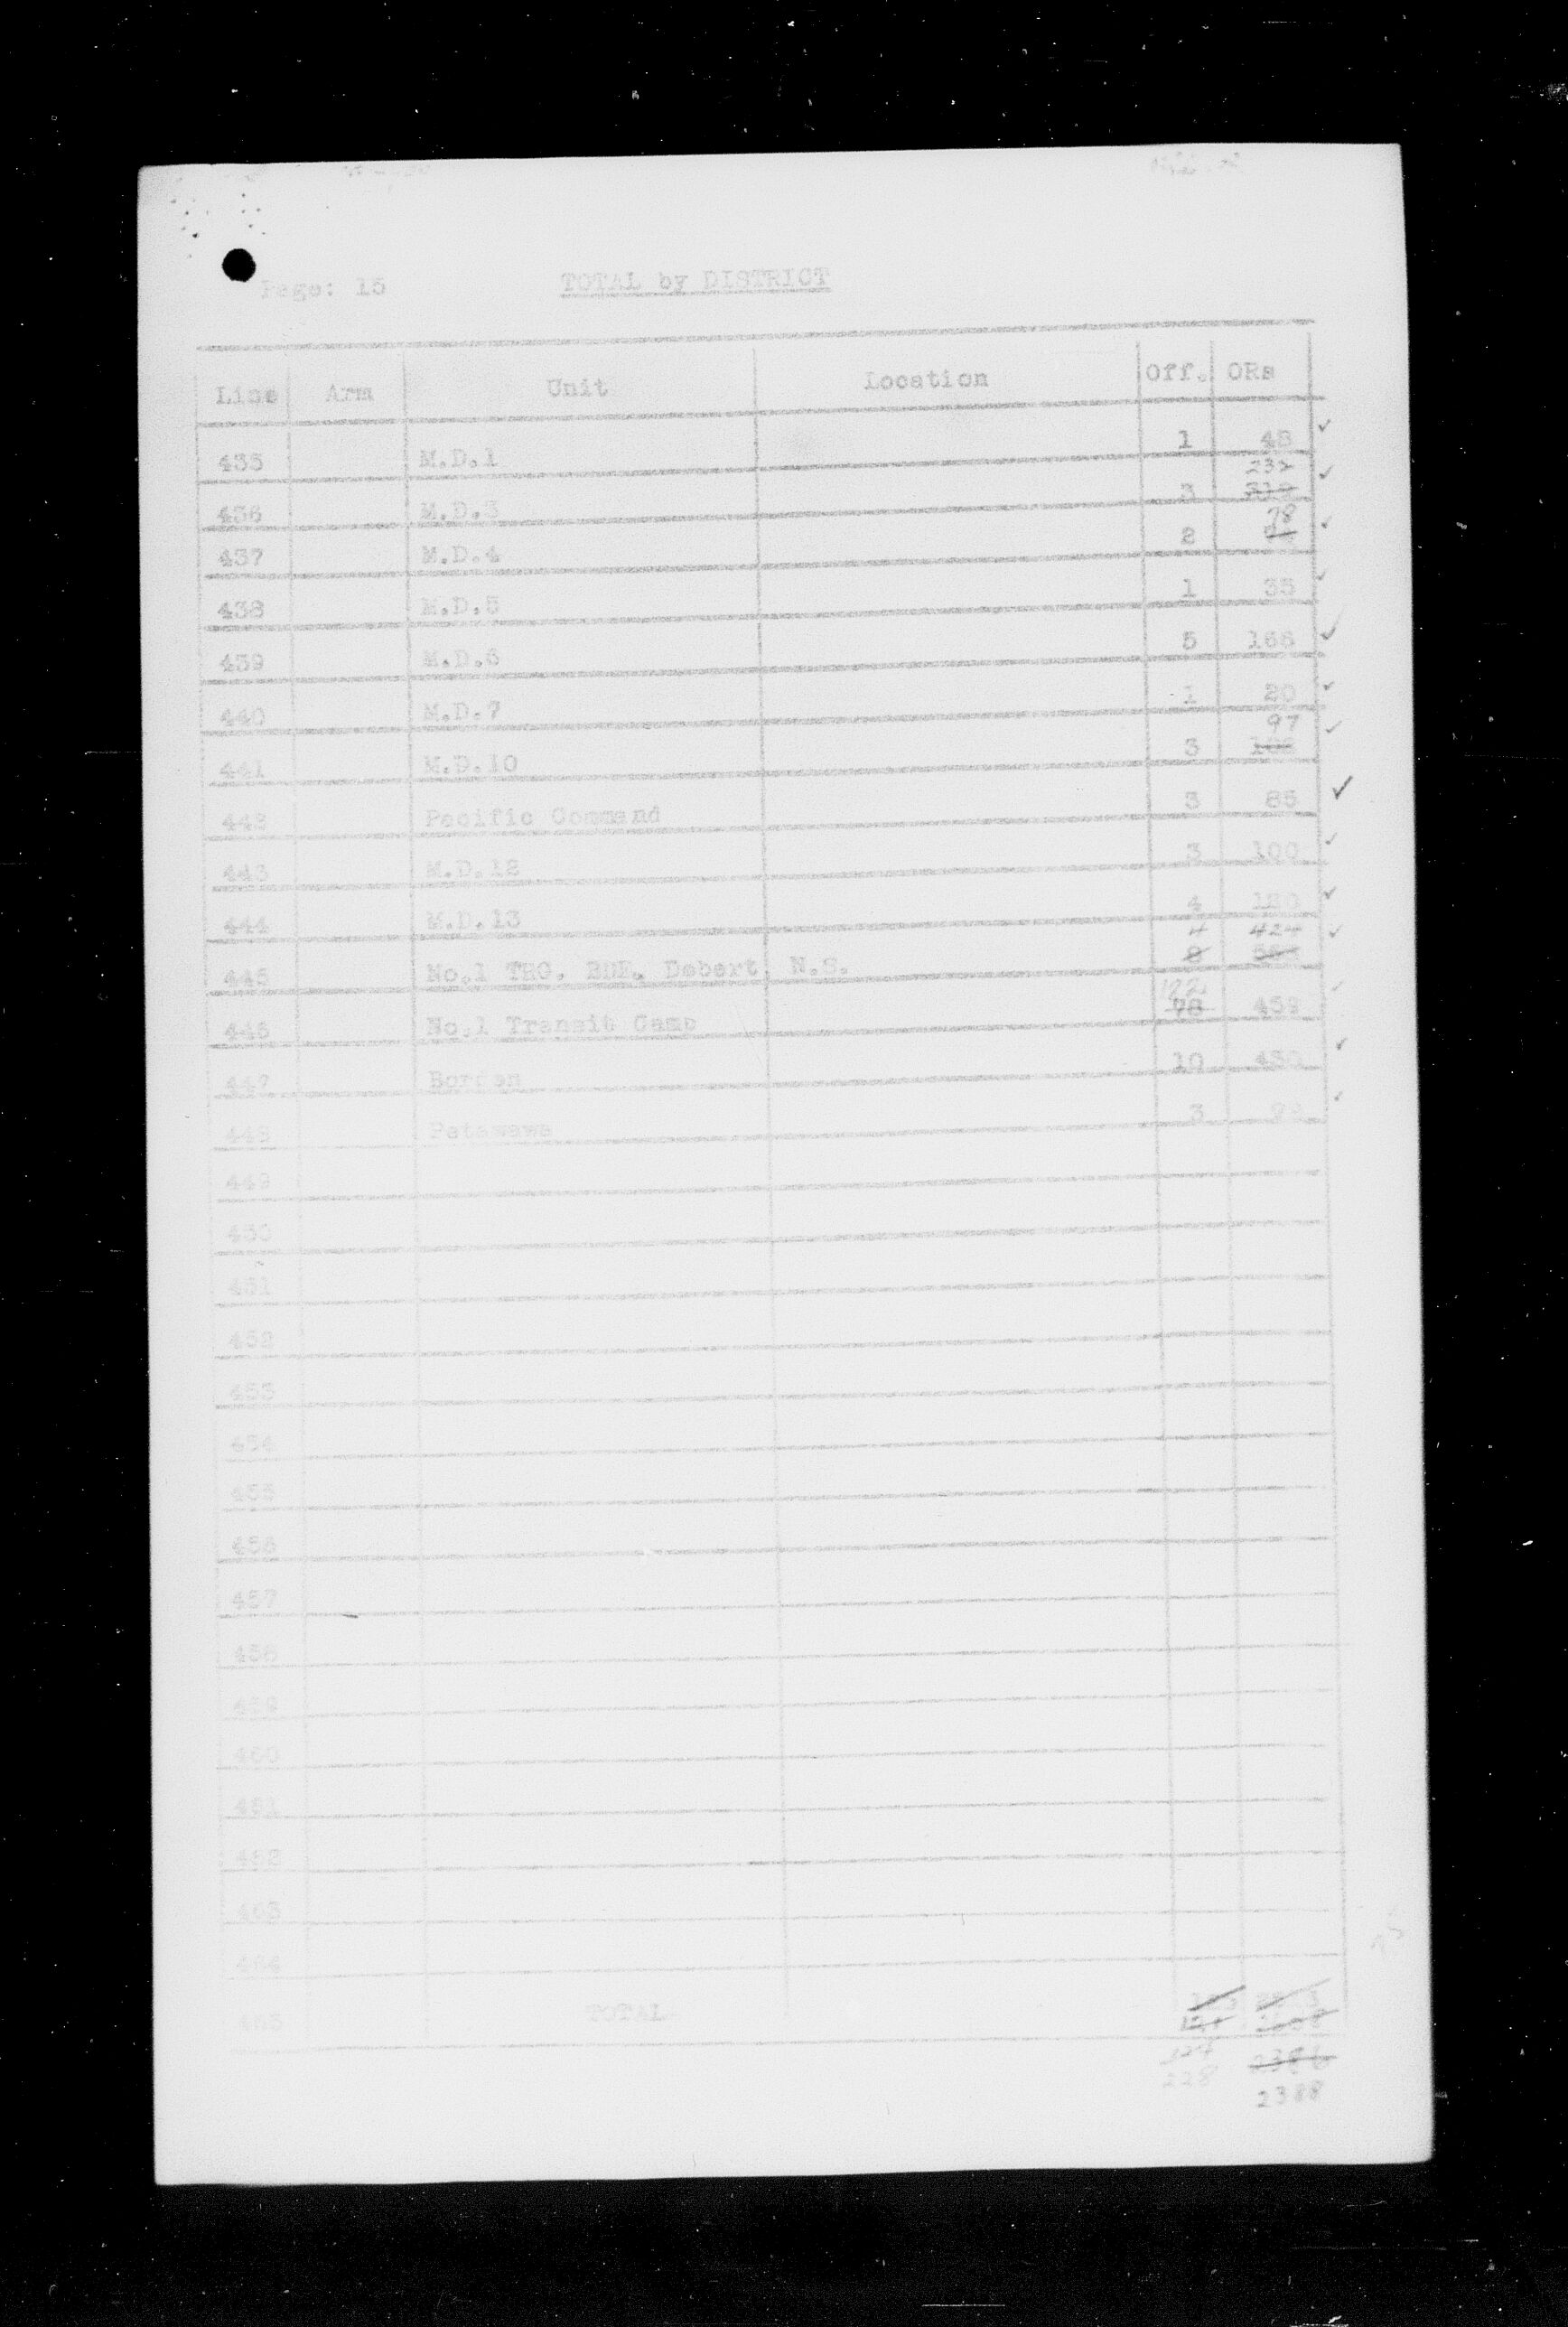 Page: 15 TOTAL by DISTRICT
Line Arm Unit Location Off. ORs
435 M.D.1 1 48
232
436 M.D.3 3
78
437 M.D.4 2
438 M.D.5 1 35
439 M.D.6 5 168
440 M.D.7 1 20
97
441 M.D.10 3
442 Pacific Command 3 85
443 M.D.12 3 100
444 M.D.13 4
4 424
445 No.1 TRG. BDE. Debert, N.S. 8
446 No.1 Transit Camp 78 459
447 Borden 10 450
448 Petawawa 3
449
450
451
452
453
454
455
456
457
458
459
460
461
462
463
464
465 TOTAL
2386
228
2388